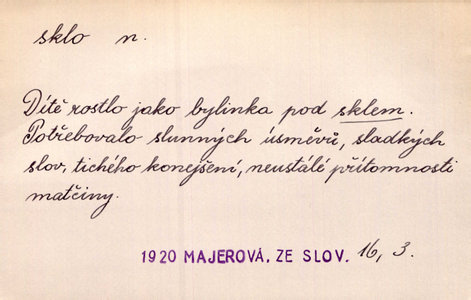 sklo n.
Dítě rostlo jako bylinka pod sklem.
Potřebovalo slunných úsměvů, sladkých
slov, tichého konejšení, neustálé přítomnosti
matčiny.
1920 MAJEROVÁ, ZE SLOV. 16, 3.